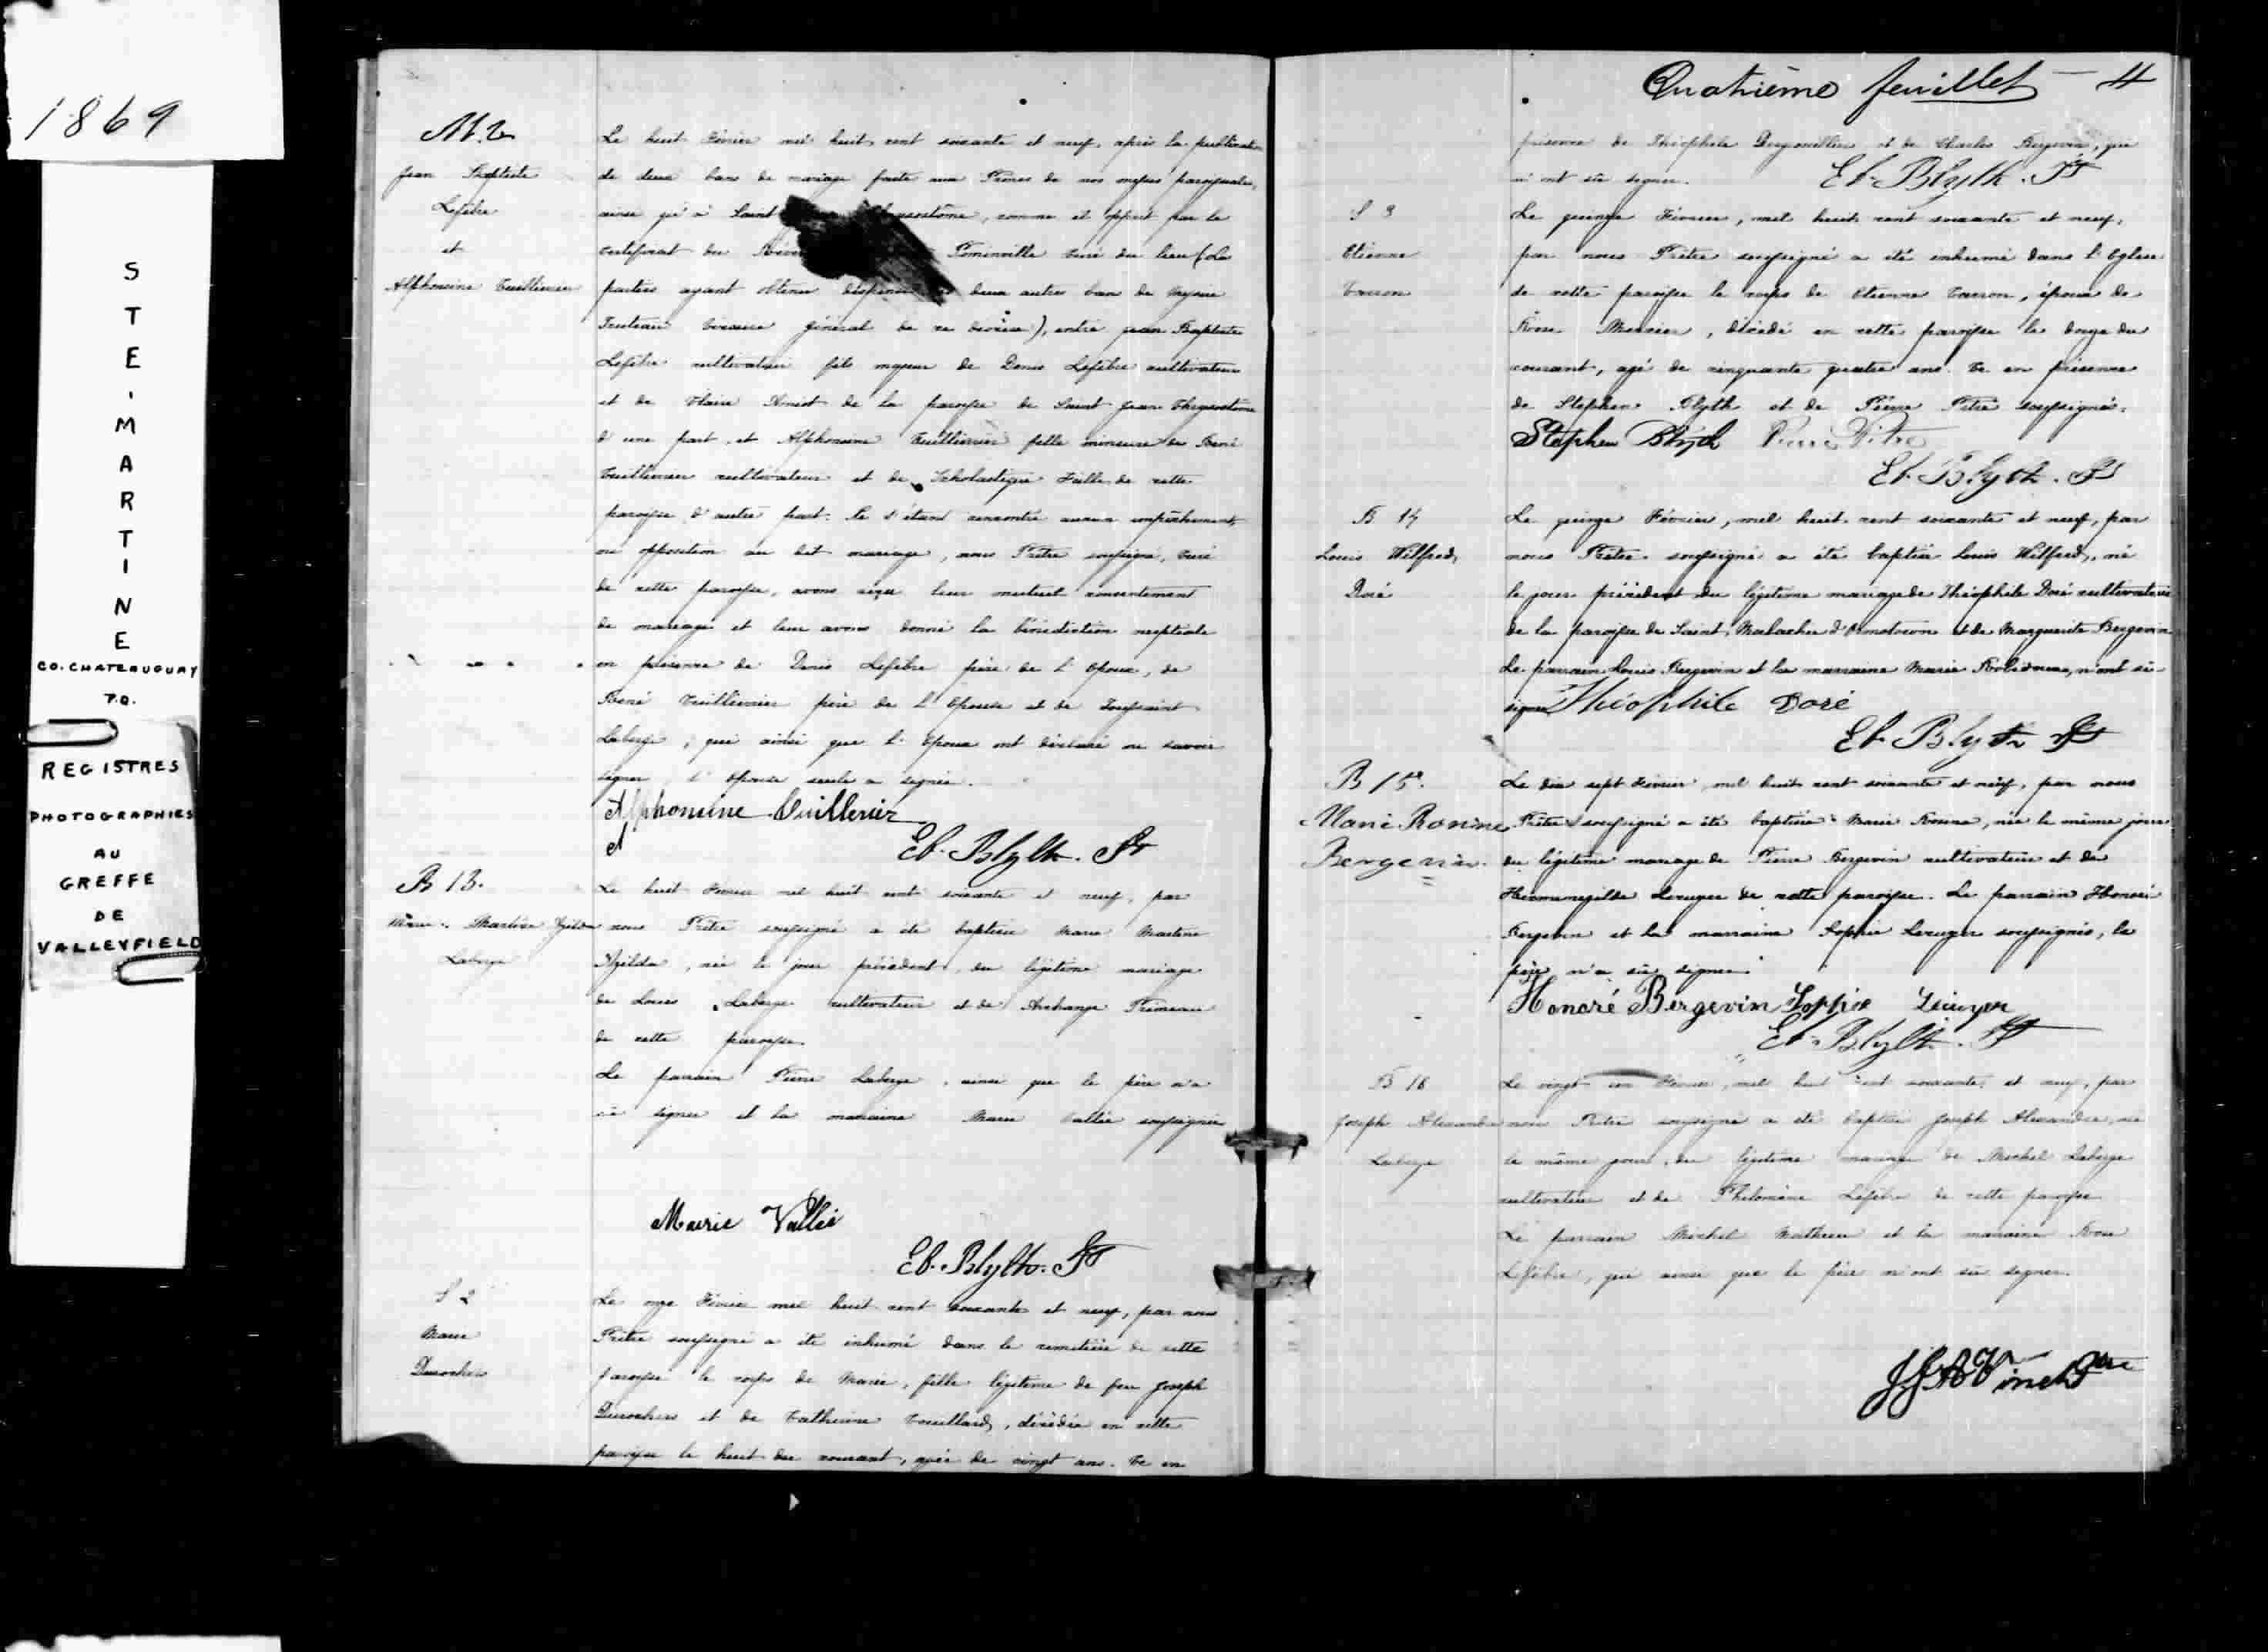 1869
STE. MARTINE
CO. CHATEAUGUAY
P.Q.
REGISTRES
PHOTOGRAPHIES
AU
GREFFE
DE
VALLEYFIELD
M. 2
Jean Baptiste
Lefebre
et
Alphonsine
Le huit Février mil huit cent soixante et neuf, après la publication
de deux bans de mariage faite aux Prones de nos messes paroissiales,
ainsi qu'à Saint Chrysostôme, comme il appert par le
certificat du Pominville curé du lieu (Les
parties ayant obtenu dispense deux autres bans de Messire
Truteau Vicaire général de ce diocèse), entre Jean Baptiste
Lefebre cultivateur fils majeur de Denis Lefebre cultivateur
et de Claire de la paroisse de Saint Jean Chrysostôme
d'une part, et Alphonsine fille mineure de René
cultivateur et de Scholastique de cette
paroisse d'autre part. Ne s'étant rencontré aucun empêchement
ou opposition au dit mariage, nous Prêtre soussigné, Curé
de cette paroisse, avons reçu leur mutuel consentement
de mariage et leur avons donné la bénédiction nuptiale
en présence de Denis Lefebre père de l'Epoux, de
René père de l'Epouse et de Toussaint
Laberge, qui ainsi que l'Epoux ont déclaré ne savoir
signer, l'Epouse seule a signée.
Alphonsine
A
Eb. Blyth. Pt
B 13.
Marie Martine Azilda
Laberge
Le huit Février mil huit cent soixante et neuf, par
nous Prêtre soussigné a été baptisée Marie Martine
Azilda, née le jour précédent, du légitime mariage
de Louis Laberge cultivateur et de Archange Primeau
de cette paroisse.
Le parrain Pierre Laberge, ainsi que le père n'a
sû signer et la marraine Marie Vallée soussignée
Marie Vallée
Eb. Blyth. Pt
S 2
Marie
Durochers
Le onze Février mil huit cent soixante et neuf, par nous
Prêtre soussigné a été inhumé dans le cimetière de cette
paroisse le corps de Marie, fille légitime de feu Joseph
Durochers et de Catherine Couillard, décédée en cette
paroisse le huit du courant, agée de vingt ans. Ce en
Quatrième feuillet — 4
présence de Théophile et de Charles Bergevin, qui
n'ont sû signer. Eb. Blyth. Pt
S 3
Etienne
Le quinze Février, mil huit cent soixante et neuf,
par nous Prêtre soussigné a été inhumé dans l'Eglise
de cette paroisse le corps de Etienne, époux de
Rose Mercier, décédé en cette paroisse le douze du
courant, agé de cinquante quatre ans. Ce en présence
de Stephen Blyth et de Pierre Pitre soussignés.
Stephen Blyth Pierre Pitre
Eb. Blyth. Pt
B 14
Louis Wilfred,
Doré
Le quinze Février, mil huit cent soixante et neuf, par
nous Prêtre soussigné a été baptisé Louis Wilfred, né
le jour précédent du légitime mariage de Théophile Doré cultivateur
de la paroisse de Saint Malachie d'Ormstown et de Marguerite Bergevin
Le parrain Louis Bergevin et la marraine Marie Robidoux, n'ont sû
signer Théophile Doré
Eb. Blyth Pt
B 15.
Marie Rosinne
Bergevin.
Le dix sept Février, mil huit cent soixante et neuf, par nous
Prêtre soussigné a été baptisée Marie Rosina, née le même jour
du légitime mariage de Pierre Bergevin cultivateur et de
Hermenegilde Lecuyer de cette paroisse. Le parrain Honoré
Bergevin et la marraine Sophie Lecuyer soussignés, le
père n'a sû signer.
Honoré Bergevin Sophie Lécuyer
Eb. Blyth. Pt
B 16
Joseph Alexandre
Laberge
Le vingt un Février, mil huit cent soixante et neuf, par
nous Prêtre soussigné a été baptisé Joseph Alexandre, né
le même jour, du légitime mariage de Michel Laberge
cultivateur et de Philomène Lefebre de cette paroisse
Le parrain Michel Mathieu et la marraine Rose
Lefebre, qui ainsi que le père n'ont sû signer.